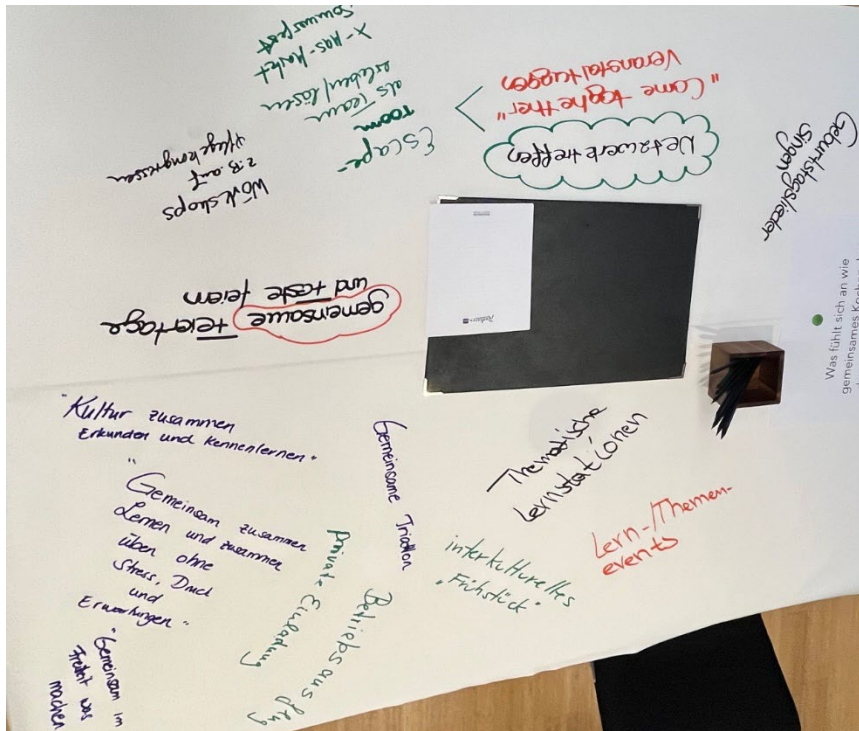 Sommerfest
X-Mas-Markt
erleben/lösen
als Team
room
Escape-
"Come toghether"
Veranstaltungen
Netzwerktreffen
Geburtstagslieder
singen
Workshops
z.B. auf
Pflegekongressen
gemeinsame Feiertage
und Feste feiern
Was fühlt sich an wie
"Kultur zusammen
Erkunden und Kennenlernen"
"Gemeinsam zusammen
Lernen und zusammen
üben ohne
Stress, Druck
und
Erwartungen"
"Gemeinsam im
Freizeit was
machen
Gemeinsame Triatlon
private Einladung
Betriebsausflug
Thematische
Lernstationen
interkulturelles
"Frühstück"
Lern-/Themen-
events